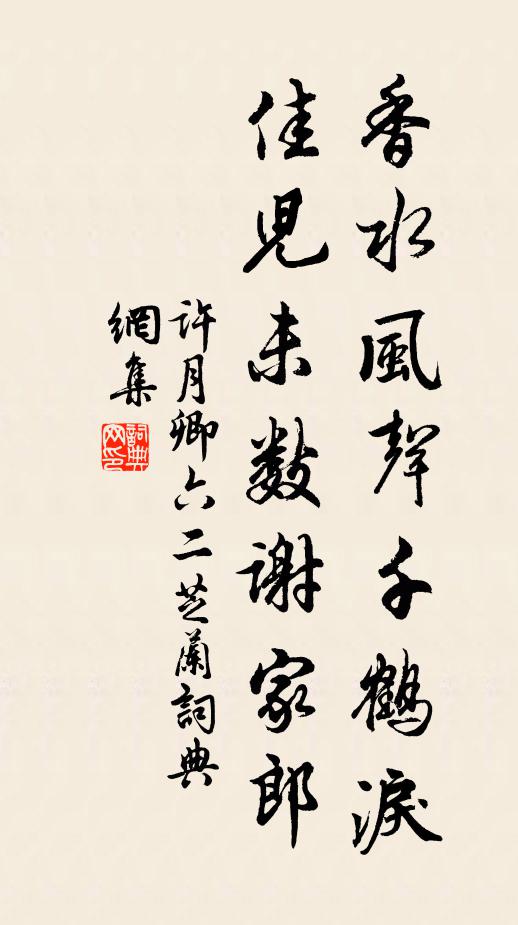 香水風聲千鶴淚
佳児未數謝家郎
許月卿六二芝蘭詞典
網集
詞典網印